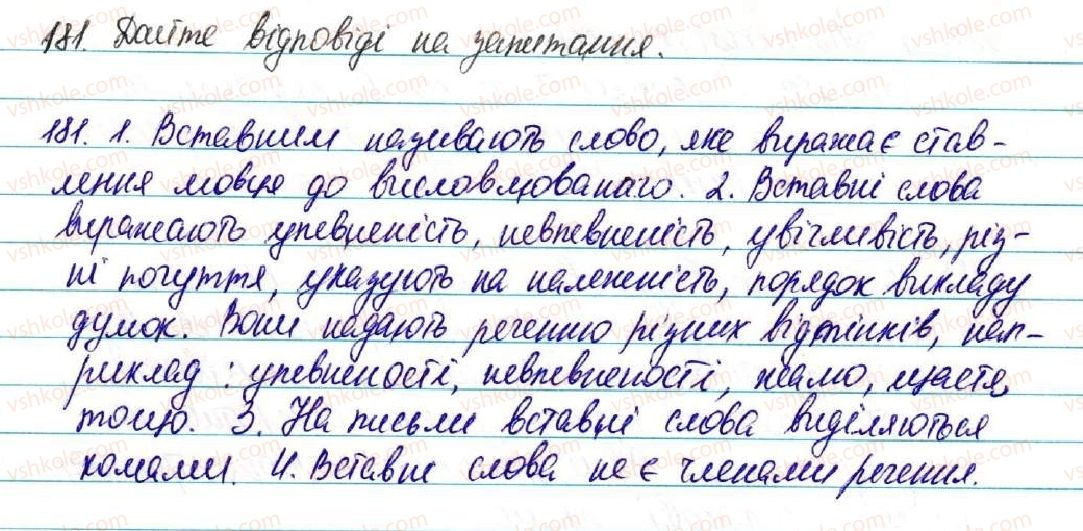 181. Дайте відповіді на запитання.
181. 1. Вставним називають слово, яке виражає став-
лення мовця до висловлюваного. 2. Вставні слова
виражають упевненість, невпевненість, увічливість, різ-
ні почуття, указують на належність, порядок викладу
думок. Вони надають реченню різних відтінків, нап-
риклад: упевненості, невпевненості, жалю, щастя,
тощо. 3. На письмі вставні слова виділяються
комами. 4. Вставні слова не є членами речення.